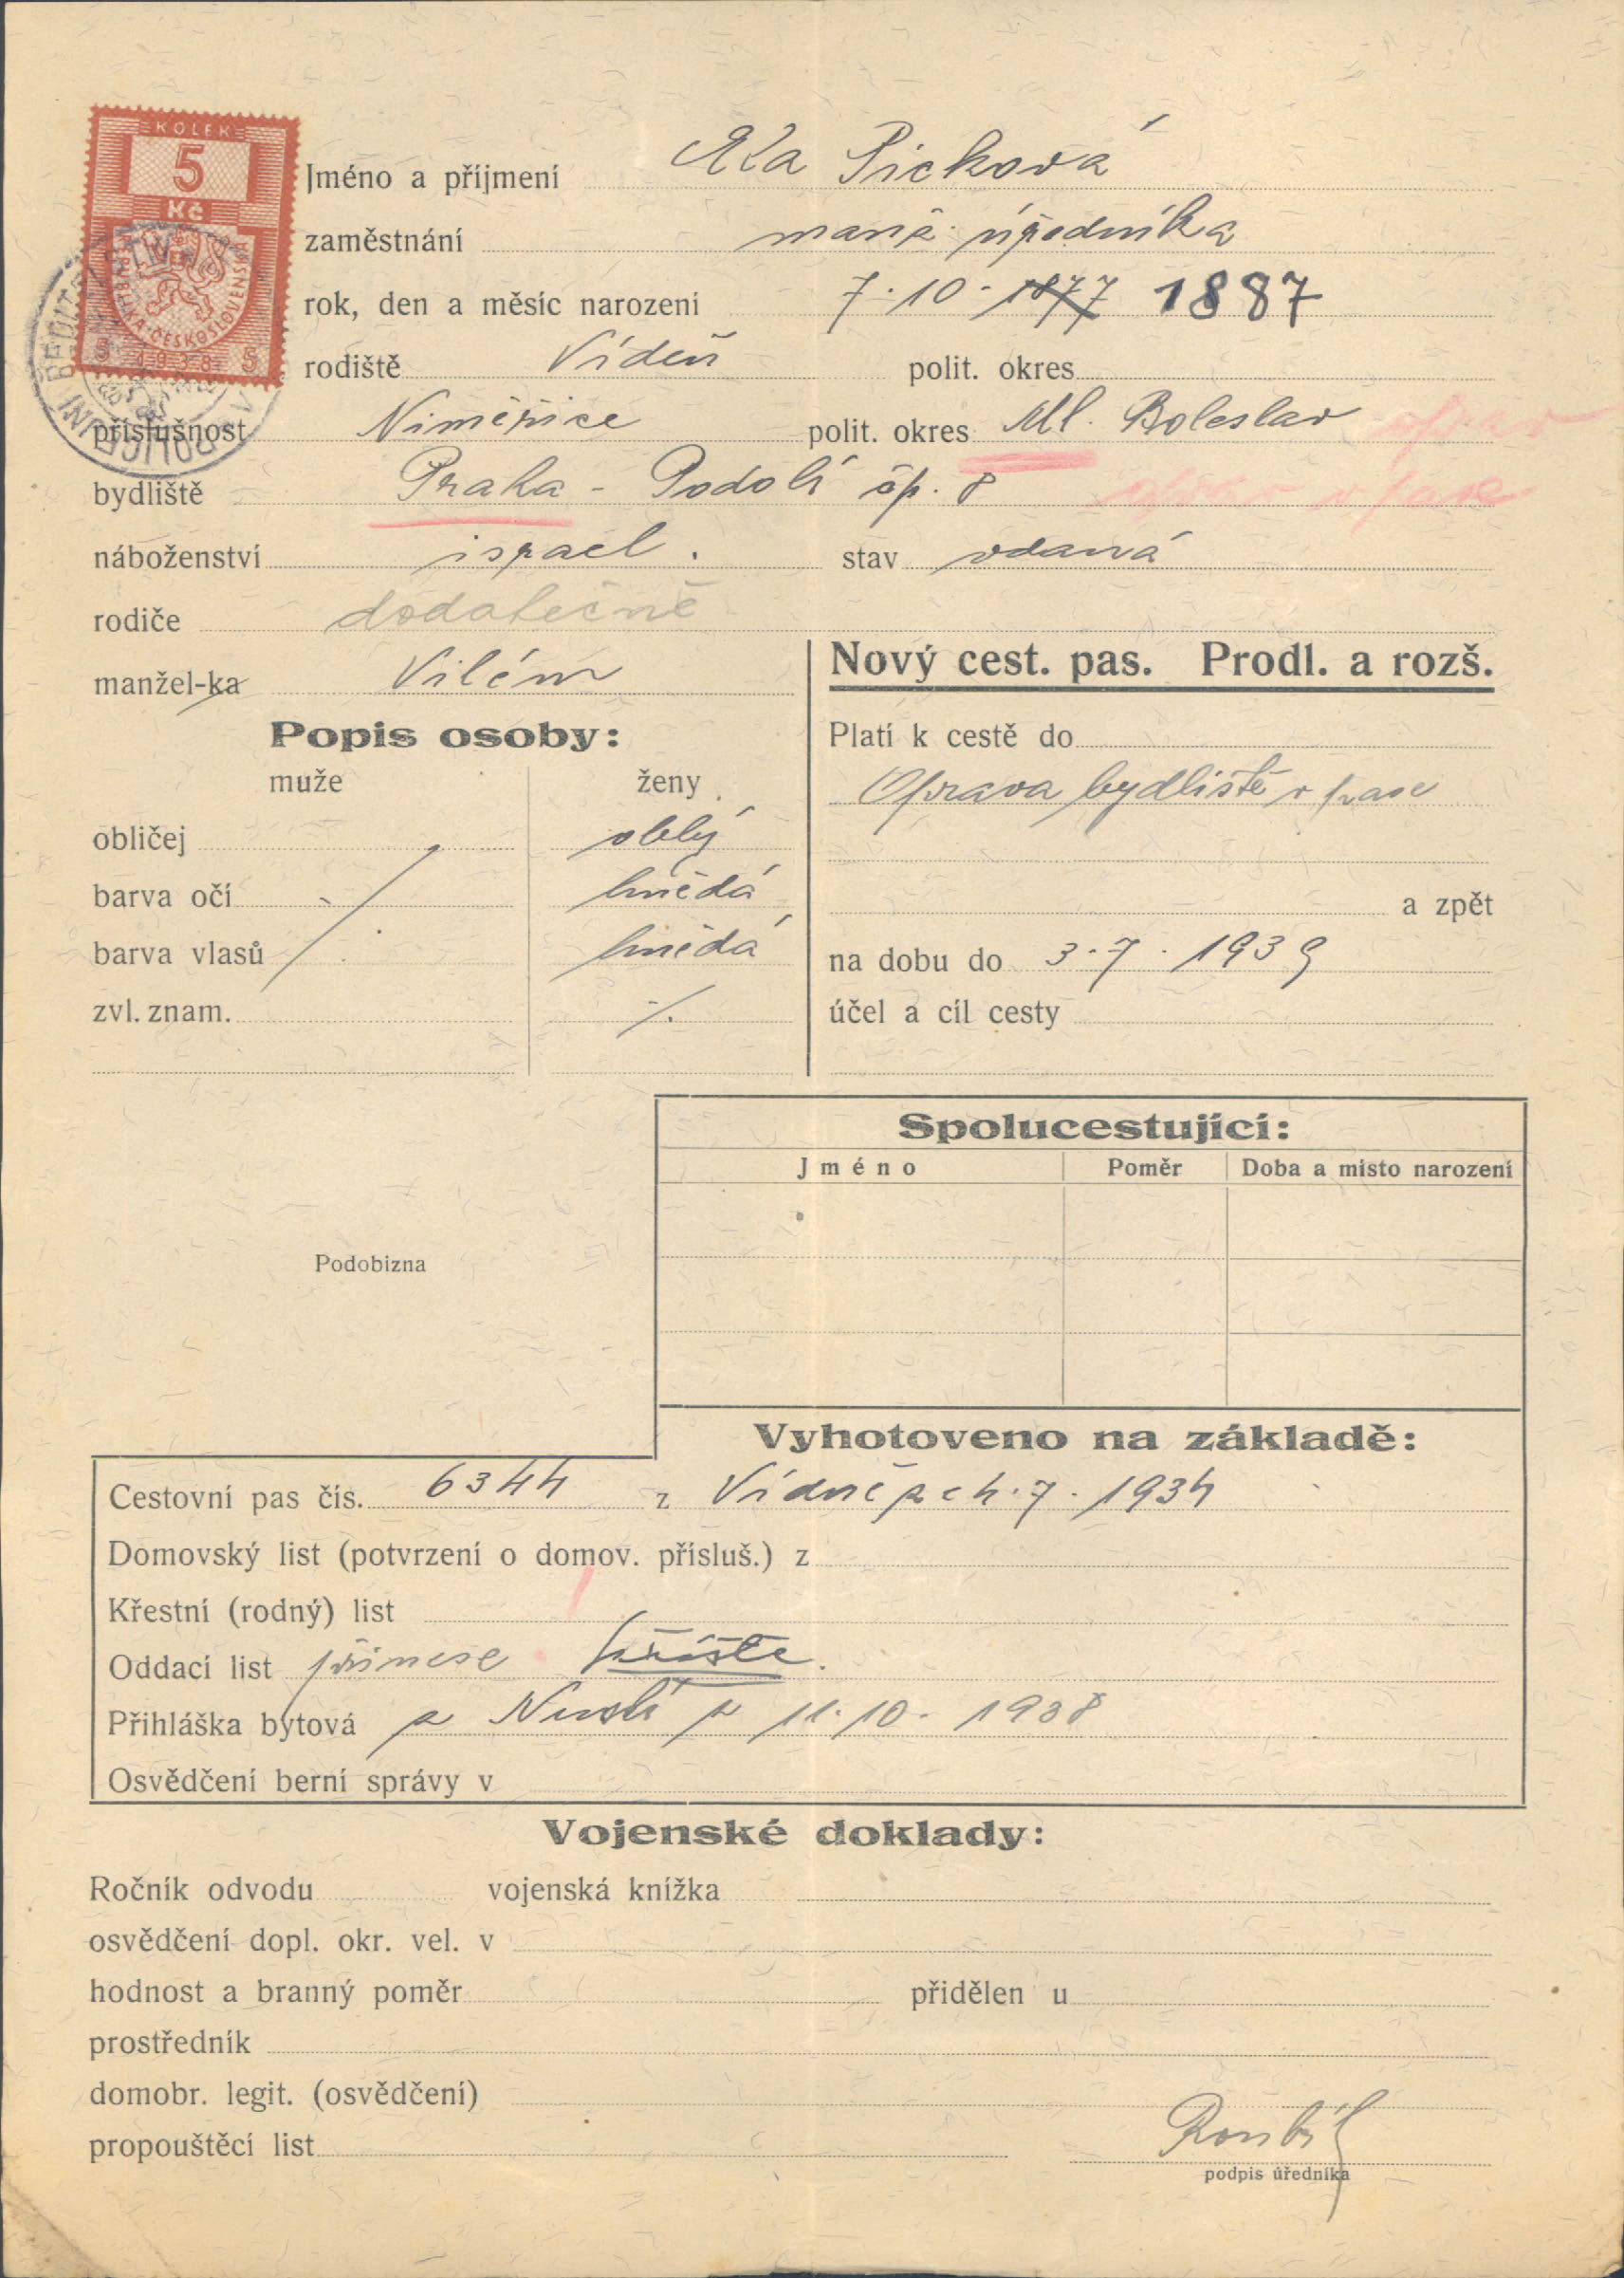 KOLEK
5
Kč
REPUBLIKA ČESKOSLOVENSKÁ
5 1938 5
Jméno a příjmení Picková
zaměstnání manž. úředníka
rok, den a měsíc narození 7.10. 1877 1887
rodiště Vídeň polit. okres
příslušnost Niměřice polit. okres Ml. Boleslav oprav
bydliště Praha - Podolí čp. 8 oprav v pase
náboženství israel. stav vdaná
rodiče dodatečně
manžel-ka Vilém
Nový cest. pas. Prodl. a rozš.
Popis osoby:
muže ženy
obličej oblý
barva očí hnědá
barva vlasů hnědá
zvl. znam. ./.
Platí k cestě do
Oprava bydliště v pase
a zpět
na dobu do 3.7.1939
účel a cíl cesty
Spolucestující:
Jméno Poměr Doba a místo narození
Podobizna
Vyhotoveno na základě:
Cestovní pas čís. 6344 z Vídně ze 4.7.1934
Domovský list (potvrzení o domov. přísluš.) z
Křestní (rodný) list
Oddací list přinese příště.
Přihláška bytová z Nuslí z 11.10.1938
Osvědčení berní správy v
Vojenské doklady:
Ročník odvodu vojenská knížka
osvědčení dopl. okr. vel. v
hodnost a branný poměr přidělen u
prostředník
domobr. legit. (osvědčení)
propouštěcí list
podpis úředníka